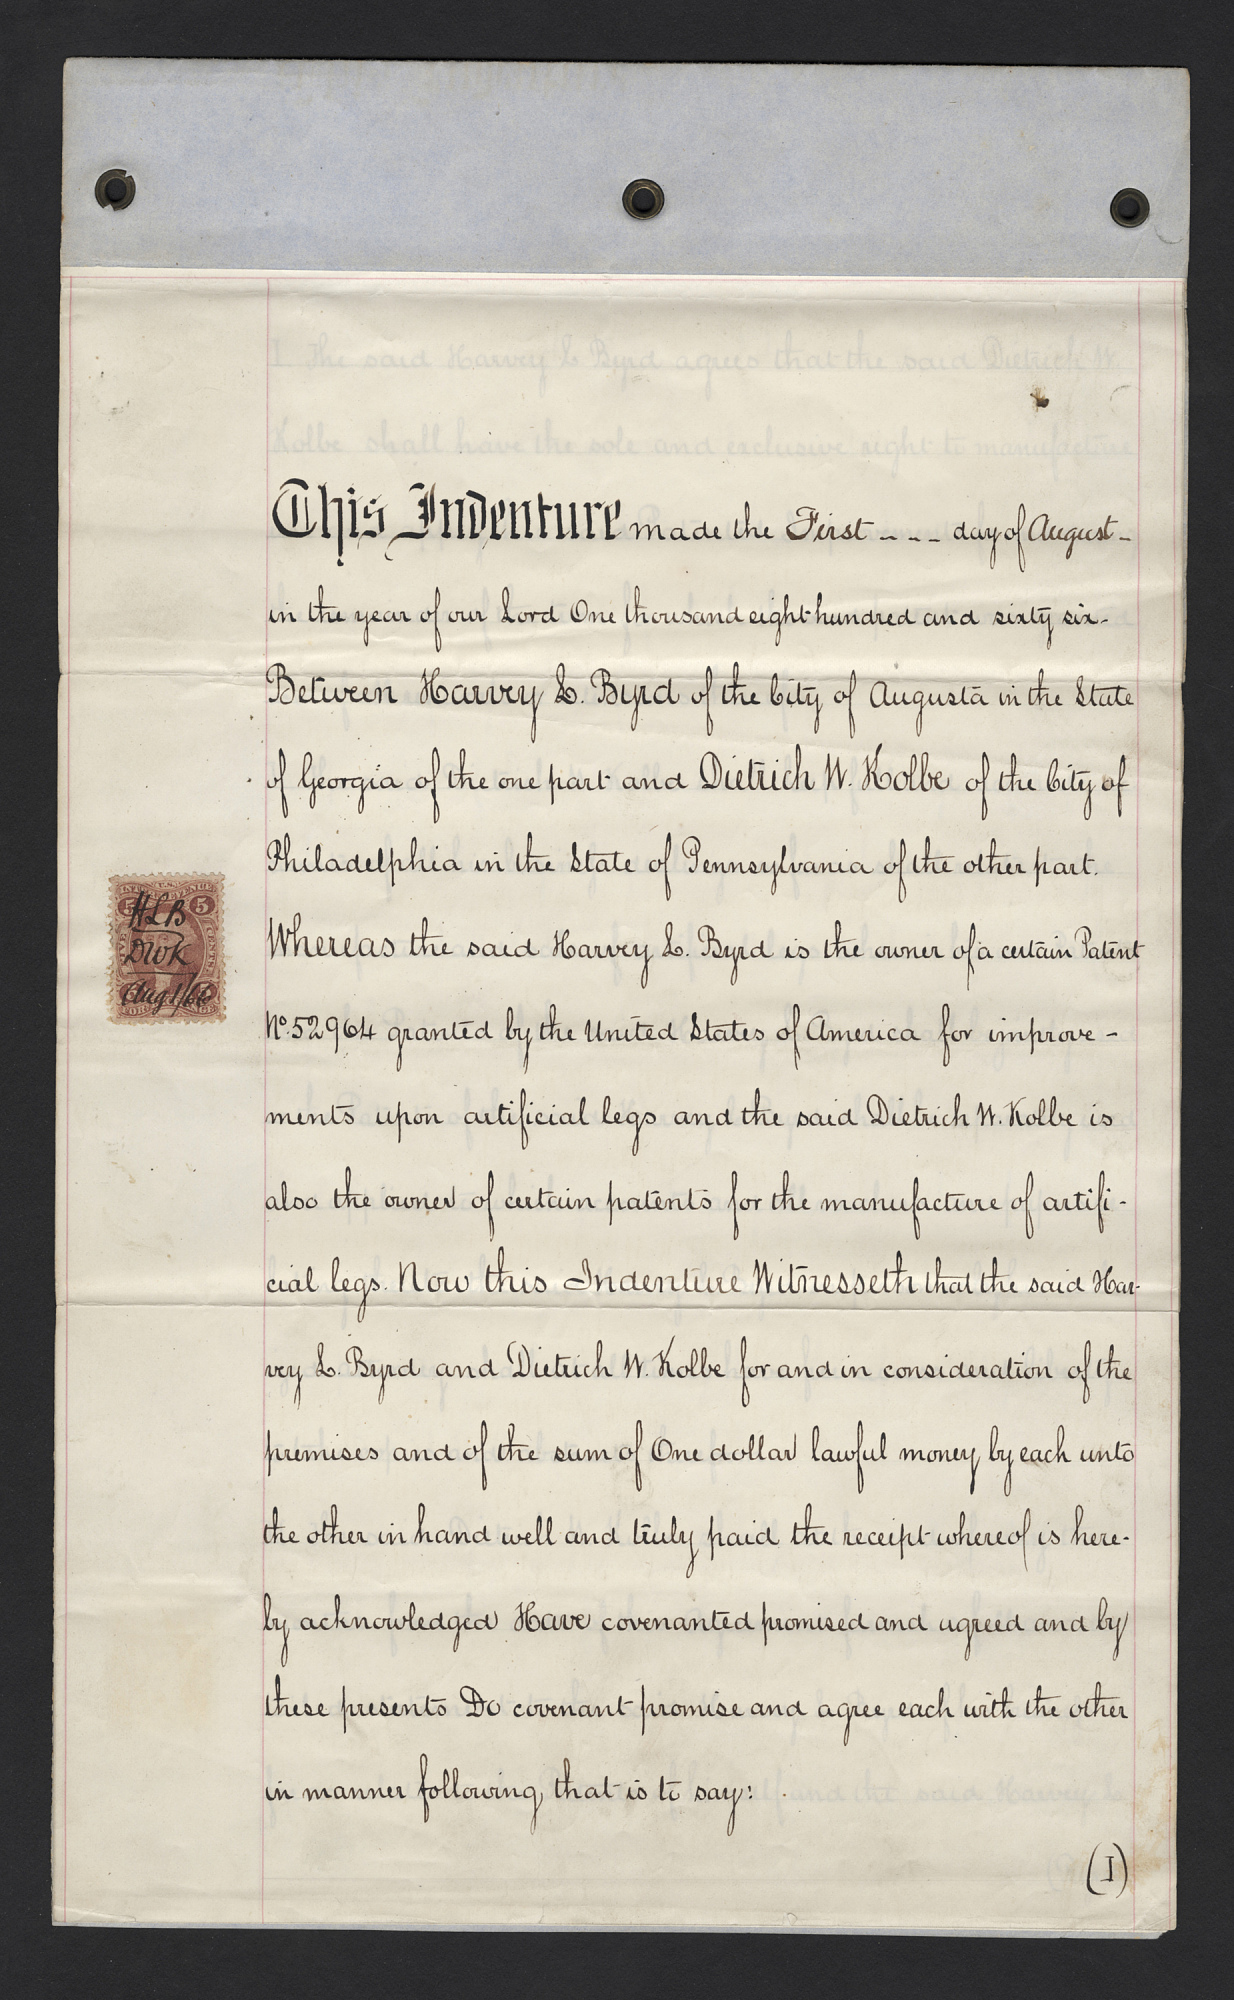 I The said Harvey L Byrd agrees that the said Dietrich W.
Kolbe shall have the sole and exclusive right to manufacture
This Indenture made the First - - - day of August -
in the year of our Lord One thousand eight hundred and sixty six -
Between Harvey L. Byrd of the City of Augusta in the State
of Georgia of the one part and Dietrich W. Kolbe of the City of
Philadelphia in the State of Pennsylvania of the other part.
Whereas the said Harvey L. Byrd is the owner of a certain Patent
No. 52964 granted by the United States of America for improve -
ments upon artificial legs and the said Dietrich W. Kolbe is
also the owner of certain patents for the manufacture of artifi -
cial legs. Now this Indenture Witnesseth that the said Har-
vey L. Byrd and Dietrich W. Kolbe for and in consideration of the
premises and of the sum of One dollar lawful money by each unto
the other in hand well and truly paid the receipt whereof is here-
by acknowledged Have covenanted promised and agreed and by
these presents Do covenant promise and agree each with the other
in manner following, that is to say:
and the said Harvey L.
(1)
5 5
HLB
DWK
Aug 1/66